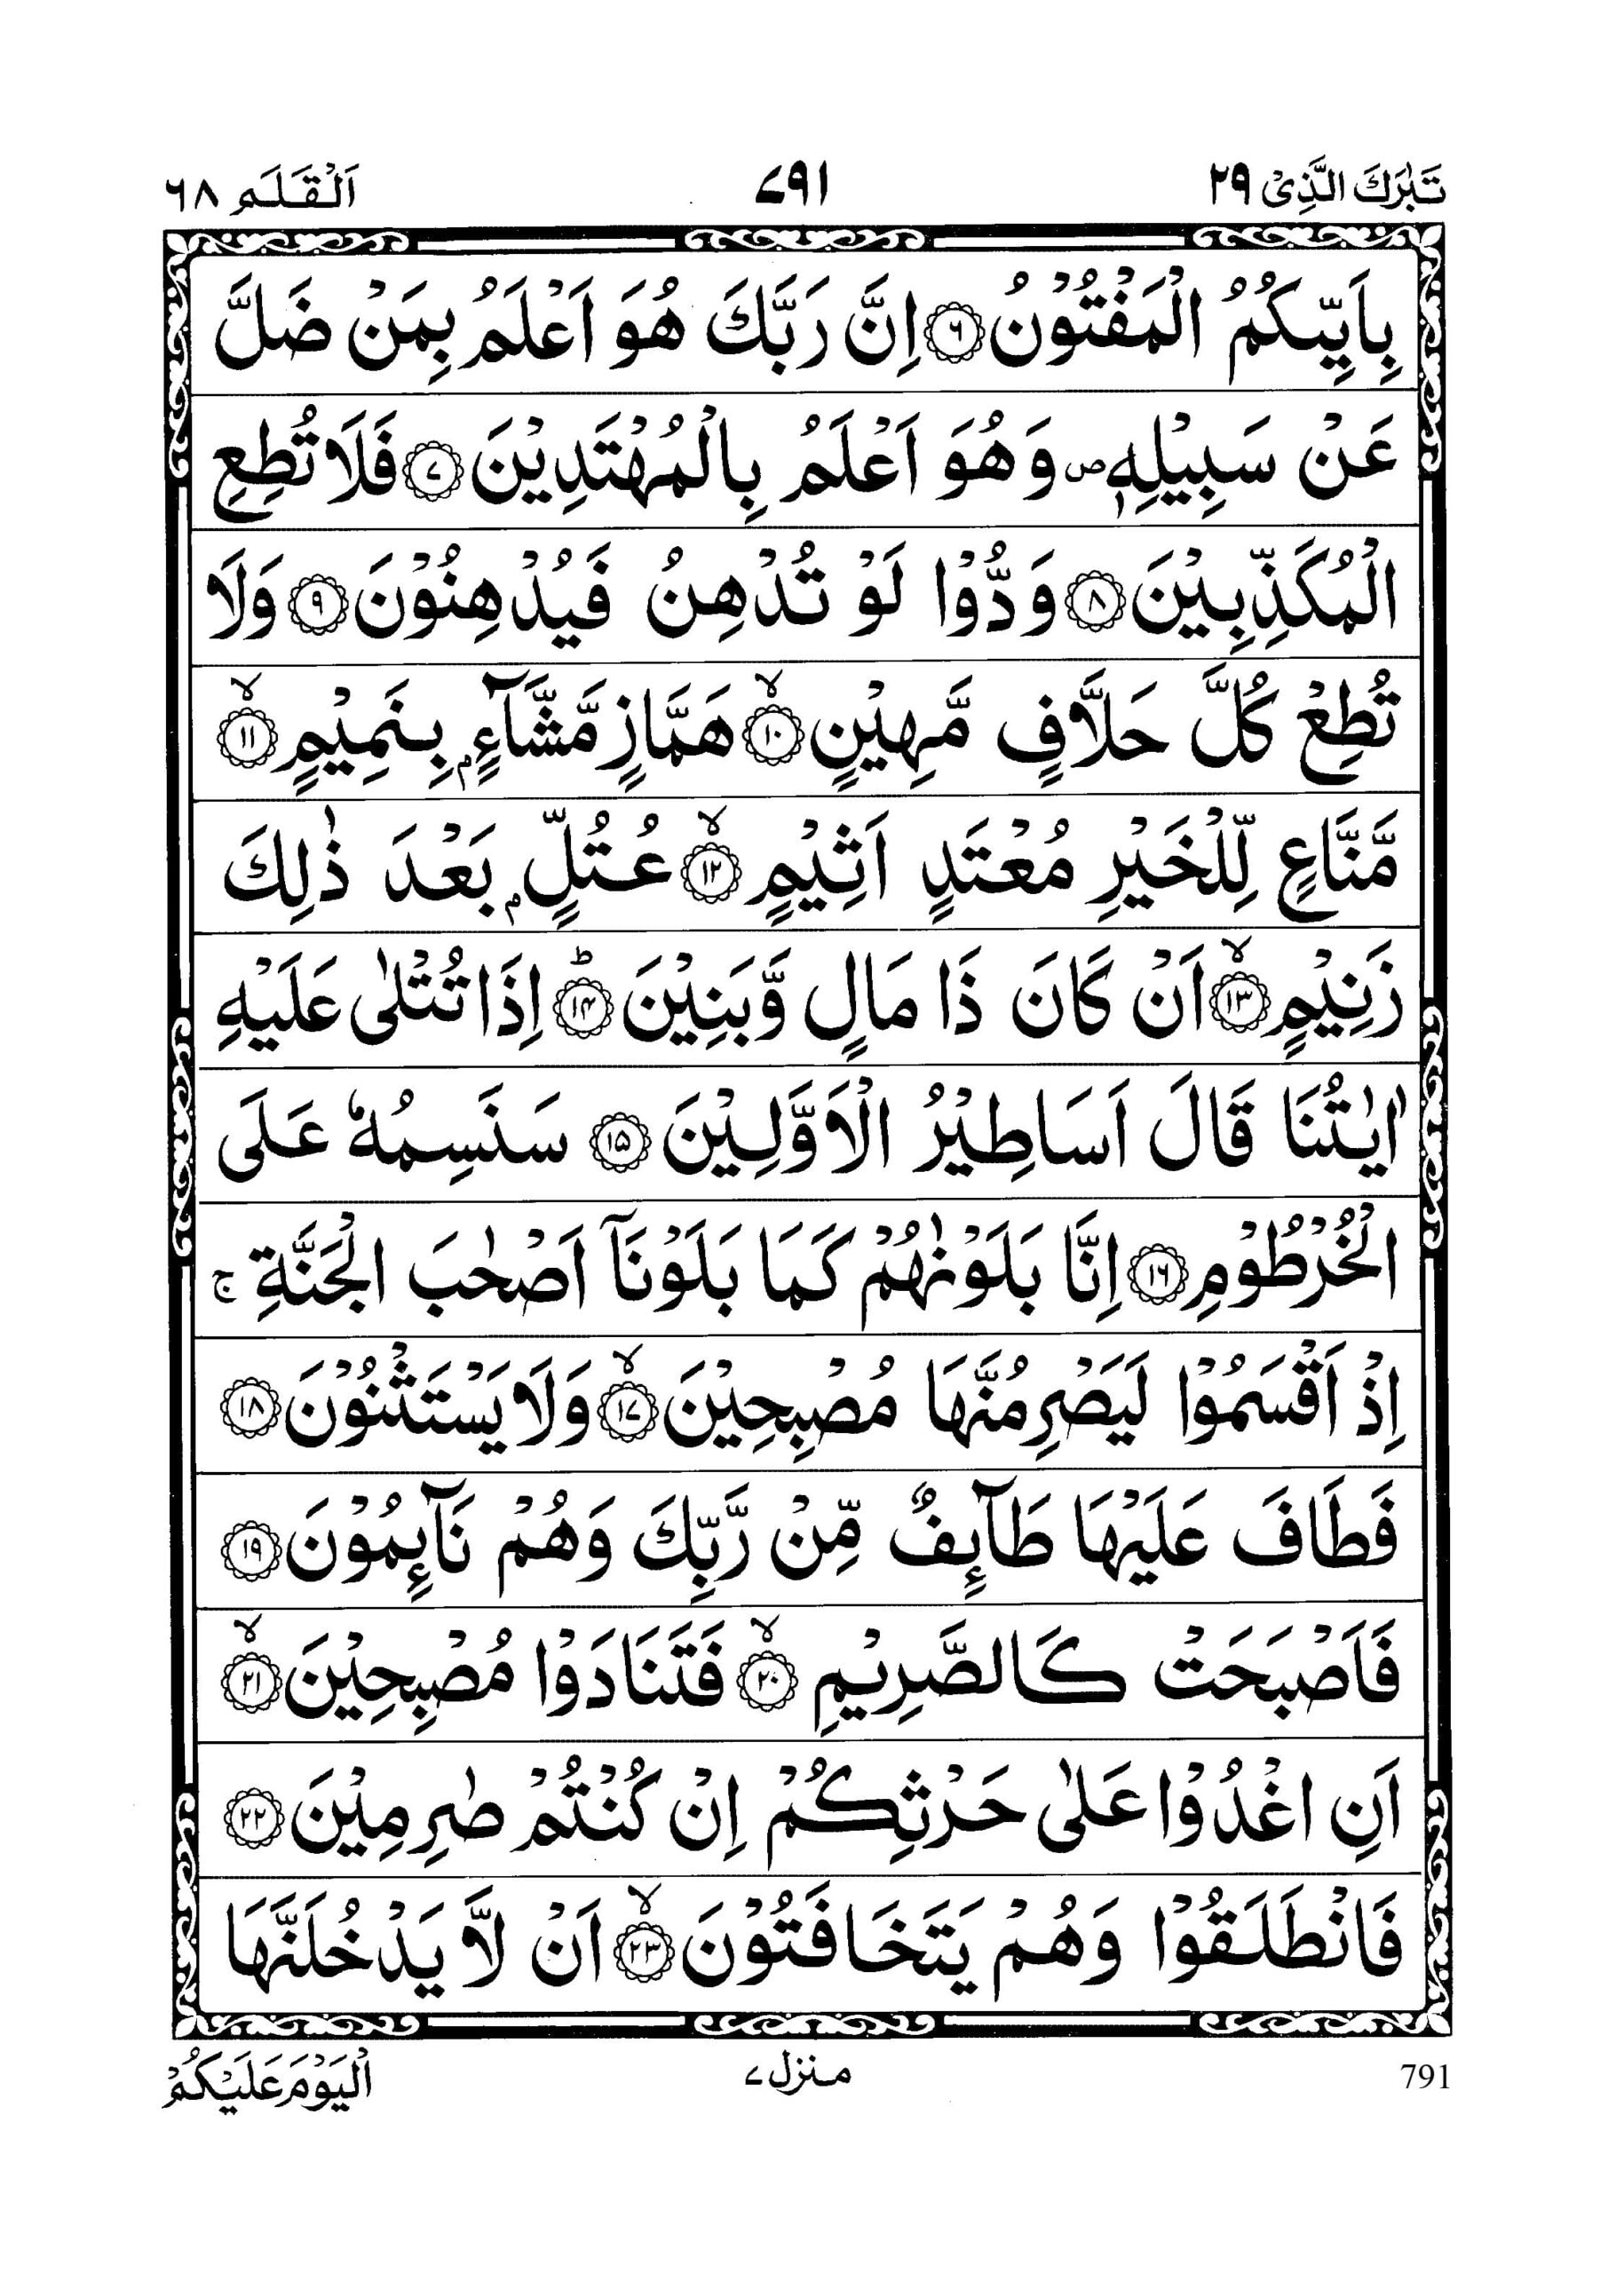 تَبٰرَكَ الَّذِیْ ۲۹
۷۹۱
اَلْقَلَم ۶۸
بِاَیِّىكُمُ الْمَفْتُوْنُ ﴿۶﴾ اِنَّ رَبَّكَ هُوَ اَعْلَمُ بِمَنْ ضَلَّ
عَنْ سَبِیْلِهٖ ۪ وَهُوَ اَعْلَمُ بِالْمُهْتَدِیْنَ ﴿۷﴾ فَلَا تُطِعِ
الْمُكَذِّبِیْنَ ﴿۸﴾ وَدُّوْا لَوْ تُدْهِنُ فَیُدْهِنُوْنَ ﴿۹﴾ وَلَا
تُطِعْ كُلَّ حَلَّافٍ مَّهِیْنٍ ﴿۱۰﴾ۙ هَمَّازٍ مَّشَّآءٍۭ بِنَمِیْمٍ ﴿۱۱﴾ۙ
مَّنَّاعٍ لِّلْخَیْرِ مُعْتَدٍ اَثِیْمٍ ﴿۱۲﴾ۙ عُتُلٍّۭ بَعْدَ ذٰلِكَ
زَنِیْمٍ ﴿۱۳﴾ۙ اَنْ كَانَ ذَا مَالٍ وَّبَنِیْنَ ﴿۱۴﴾ؕ اِذَا تُتْلٰی عَلَیْهِ
اٰیٰتُنَا قَالَ اَسَاطِیْرُ الْاَوَّلِیْنَ ﴿۱۵﴾ سَنَسِمُهٗ عَلَی
الْخُرْطُوْمِ ﴿۱۶﴾ اِنَّا بَلَوْنٰهُمْ كَمَا بَلَوْنَاۤ اَصْحٰبَ الْجَنَّةِ ۚ
اِذْ اَقْسَمُوْا لَیَصْرِمُنَّهَا مُصْبِحِیْنَ ﴿۱۷﴾ۙ وَلَا یَسْتَثْنُوْنَ ﴿۱۸﴾
فَطَافَ عَلَیْهَا طَآىِٕفٌ مِّنْ رَّبِّكَ وَهُمْ نَآىِٕمُوْنَ ﴿۱۹﴾
فَاَصْبَحَتْ كَالصَّرِیْمِ ﴿۲۰﴾ۙ فَتَنَادَوْا مُصْبِحِیْنَ ﴿۲۱﴾ۙ
اَنِ اغْدُوْا عَلٰی حَرْثِكُمْ اِنْ كُنْتُمْ صٰرِمِیْنَ ﴿۲۲﴾
فَانْطَلَقُوْا وَهُمْ یَتَخَافَتُوْنَ ﴿۲۳﴾ۙ اَنْ لَّا یَدْخُلَنَّهَا
791
منزل ۷
الْیَوْمَ عَلَیْكُمْ